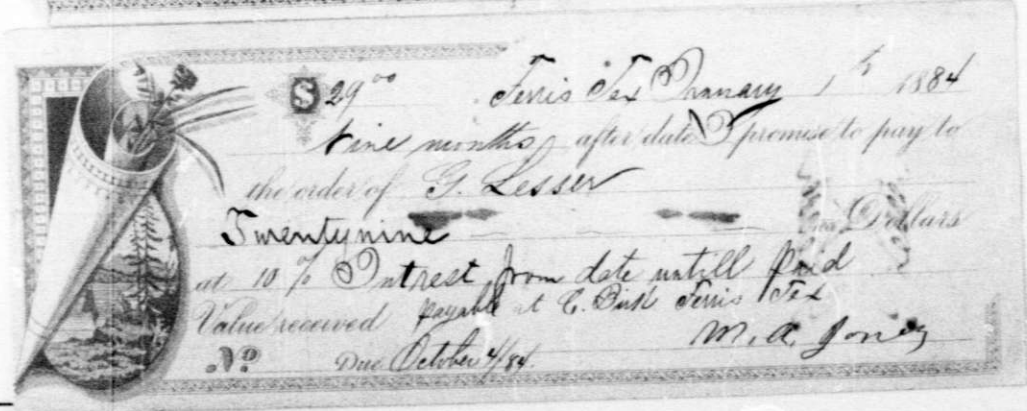 $29.00 Ferris Tex January 1st 1884
Nine months after date I promise to pay to
the order of G. Lesser
Twentynine Dollars
at 10 % Intrest from date untill paid
Value received payable at E. Bish Ferris Tex
M. A. Jones
No. Due October 4/84.